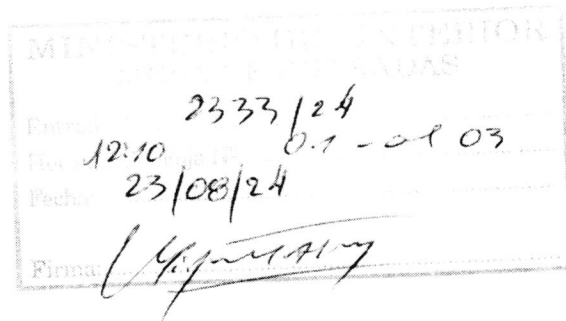 MINISTERIO DEL INTERIOR
MESA DE ENTRADAS
Entrad 2333/24
Hor 12:10 Foja 01 - al 03
Fecha: 23/08/24
Firma: